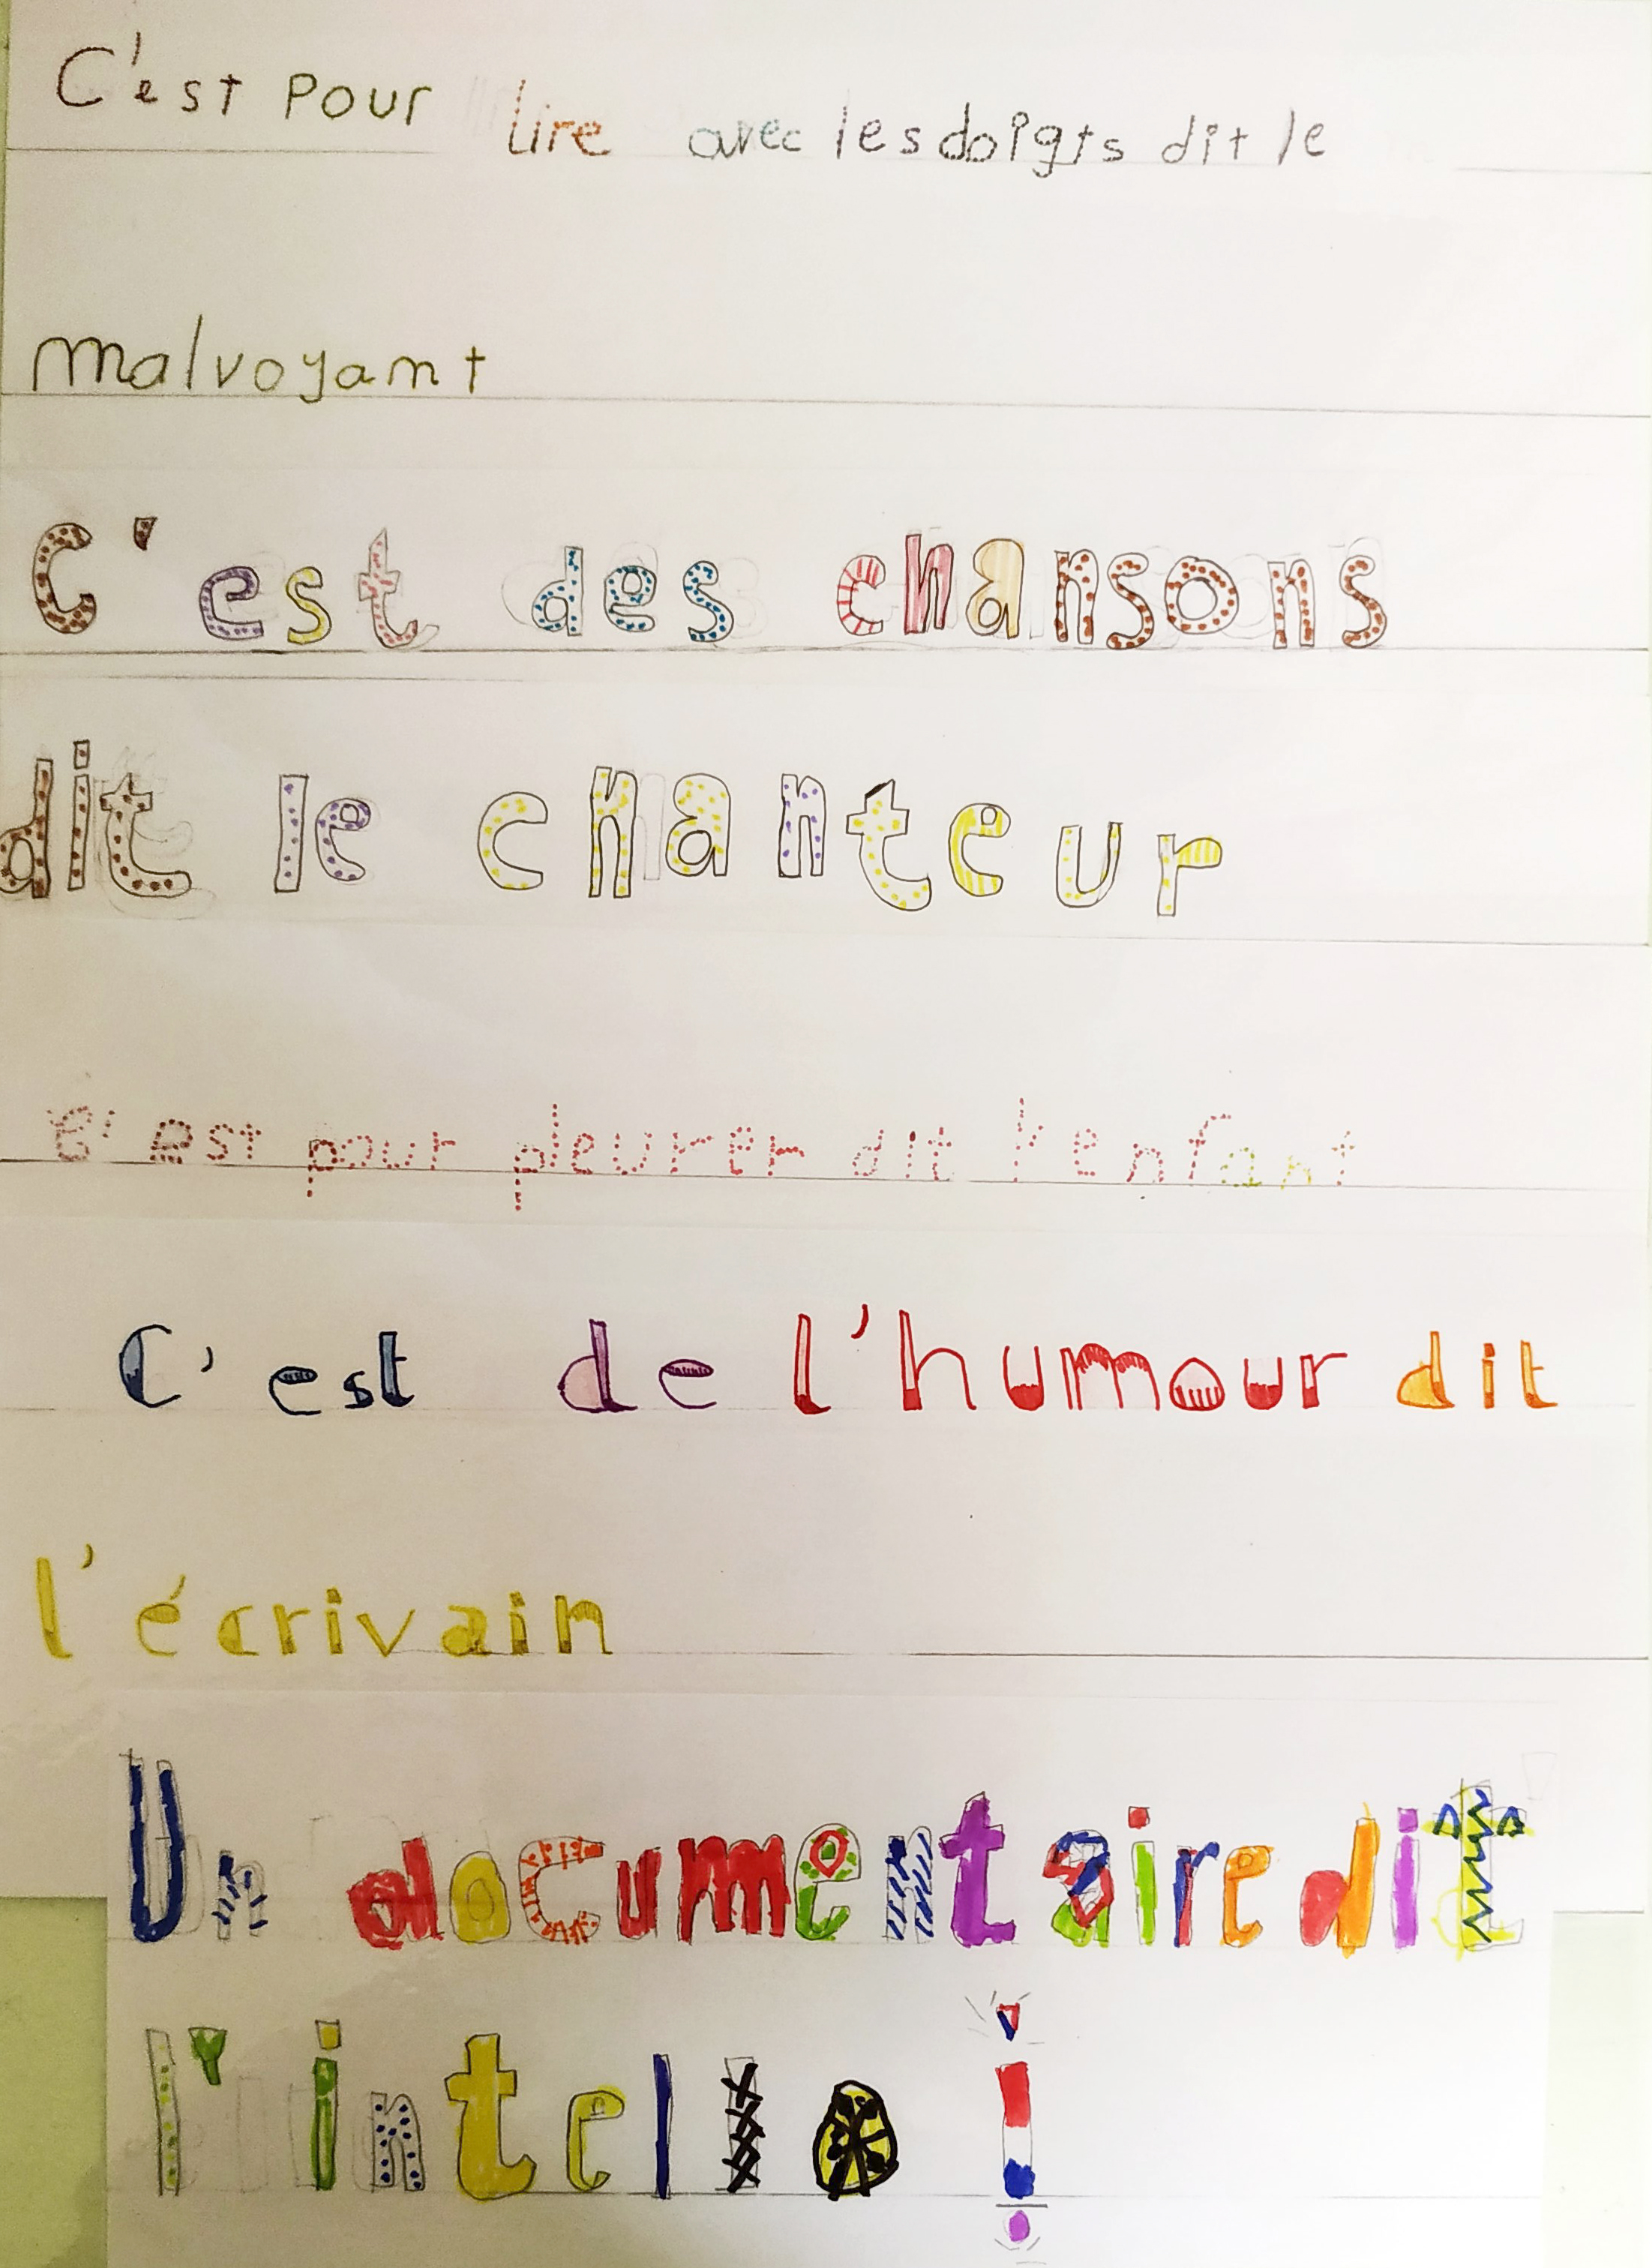 C'est pour lire avec les doigts dit le
malvoyant
C'est des chansons
dit le chanteur
C'est pour pleurer dit l'enfant
C'est de l'humour dit
l'écrivain
Un documentaire dit
l'intello !